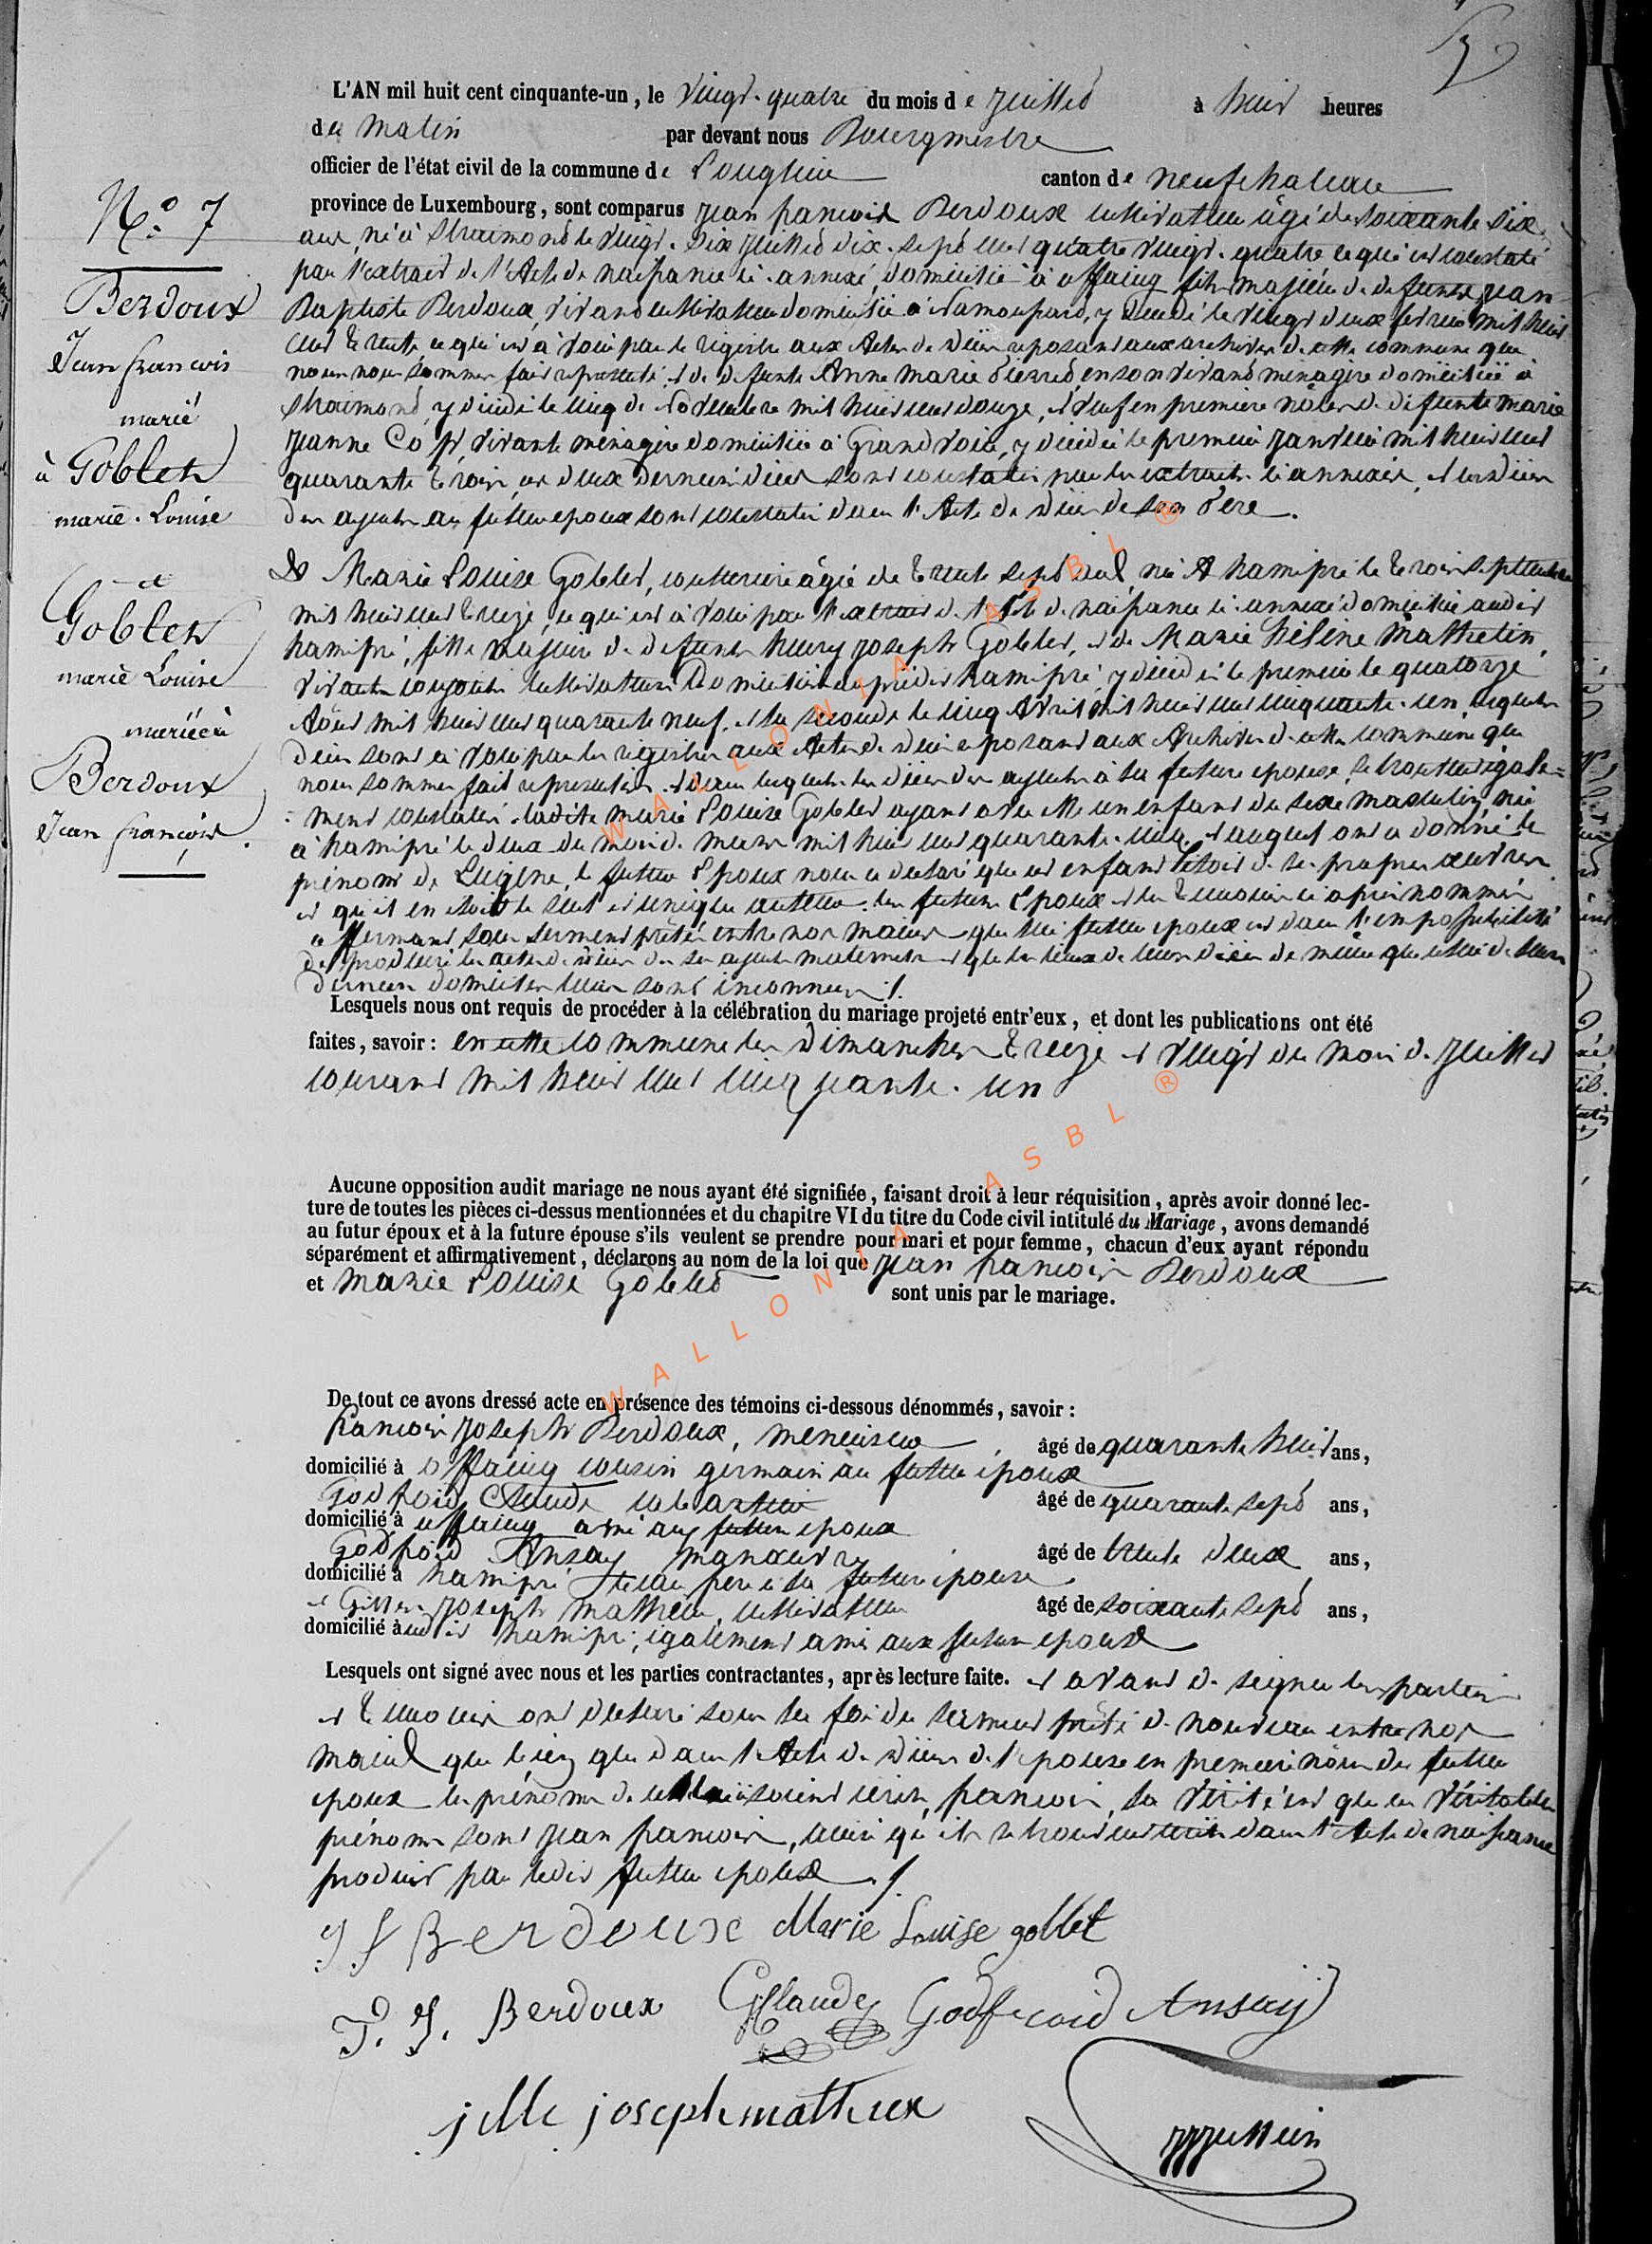 L'AN mil huit cent cinquante-un, le vingt-quatre du mois de Juillet à huit heures
du Matin par devant nous Bourgmestre
officier de l'état civil de la commune de Longlier canton de neufchateau
N.° 7
province de Luxembourg, sont comparus Jean francois Berdoux cultivateur âgé de soixante six
ans, né à Straimont le vingt-six Juillet dix-sept cent quatre vingt-quatre ce qui est constaté
par l'extrait de l'Acte de naissance ci-annexé, domicilié à offaing fils majeur de defunt Jean
Berdoux
Baptiste Berdoux, vivant cultivateur domicilié à namoussart, y décédé le vingt deux fevrier mil huit
cent trente, ce qui est à voir par le registre aux Actes de décès reposant aux archives de cette commune que
Jean francois
nous nous sommes fait représenter et de defunte Anne Marie Pierret, en son vivant ménagère domiciliée à
marié
Straimont, y décédée le cinq de Novembre mil huit cent douze, et veuf en première nôces de défunte marie
Jeanne vivante ménagère domiciliée à Grandvoir, y décédée le premier Janvier mil huit cent
à Goblet
quarante trois, ces deux derniers décès sont constatés par les extraits ci annexés, et les décès
marie-Louise
des ayeuls au futur epoux sont constatés dans l'Acte de décès de son Père.
et
Et Marie Louise Goblet, couturière âgée de trente sept ans, née A hamipré le trois septembre
mil huit cent treize, ce qui est à voir par l'extrait de l'Acte de naissance ci-annexé domiciliée audit
Goblet
hamipré, fille majeure de defunts henry Joseph Goblet, et de Marie hélène Mathelin,
marie Louise
vivants conjoints cultivateurs domiciliés au prédit hamipré, y décédés le premier le quatorze
Aout mil huit cent quarante neuf, et la seconde le cinq Avril mil huit cent cinquante-un, lesquels
mariée à
décès sont à voir par les registres aux Actes de décès reposant aux Archives de cette commune que
Berdoux
nous sommes fait représenter et dans lesquels les décès des ayeuls à la future epouse, se trouvent égale-
ment constatés. ladite marie Louise Goblet ayant avec elle un enfant du sexe masculin, né
Jean françois.
à hamipré le deux du mois de mars mil huit cent quarante-cinq, et auquel on a donné le
prénom de Eugène, le futur Epoux nous a declaré que cet enfant étoit de ses propres œuvres
et qu'il en étoit le seul et unique auteur. les futurs Epoux et les temoins ci après nommés
affirmant sous serment prêté entre nos mains que lui futur epoux est dans l'impossibilité
de produire les actes de décès de ses ayeuls maternels et que les lieux de leurs décès de même que celui de leurs
derniers domiciles leur sont inconnus /.
Lesquels nous ont requis de procéder à la célébration du mariage projeté entr'eux, et dont les publications ont été
faites, savoir: en cette commune les Dimanches treize et vingt du mois de Juillet
courant mil huit cent cinquante-un
Aucune opposition audit mariage ne nous ayant été signifiée, faisant droit à leur réquisition, après avoir donné lec-
ture de toutes les pièces ci-dessus mentionnées et du chapitre VI du titre du Code civil intitulé du Mariage, avons demandé
au futur époux et à la future épouse s'ils veulent se prendre pour mari et pour femme, chacun d'eux ayant répondu
séparément et affirmativement, déclarons au nom de la loi que Jean francois Berdoux
et Marie Louise Goblet sont unis par le mariage.
De tout ce avons dressé acte en présence des témoins ci-dessous dénommés, savoir:
francois Joseph Berdoux, menuisier, âgé de quarante huit ans,
domicilié à offaing cousin germain au futur epoux
Godfroid Claude cabartier âgé de quarante sept ans,
domicilié à offaing ami aux futurs epoux
Godfroid Ansay manœuvre âgé de trente deux ans,
domicilié à hamipré beau frere à la future epouse
et Gilles Joseph Mathieu, cultivateur âgé de soixante sept ans,
domicilié audit hamipré, également ami aux futurs epoux
Lesquels ont signé avec nous et les parties contractantes, après lecture faite. et avant de signer les parties
et temoins ont declaré sous la foi du serment prêté de nouveau entre nos
mains que bien que dans l'Acte de décès de l'epouse en premiere nôces du futur
epoux les prénoms de soient ecrits, francois, la vérité est que ces véritables
prénoms sont Jean francois, ainsi qu'ils se trouvent ecrits dans l'Acte de naissance
produit par ledit futur epoux ./.
J f Berdoux Marie Louise goblet
F. J. Berdoux G Claude Godfroid Ansay
jille joseph mathieux
WALLONIA ASBL ®
WALLONIA ASBL ®